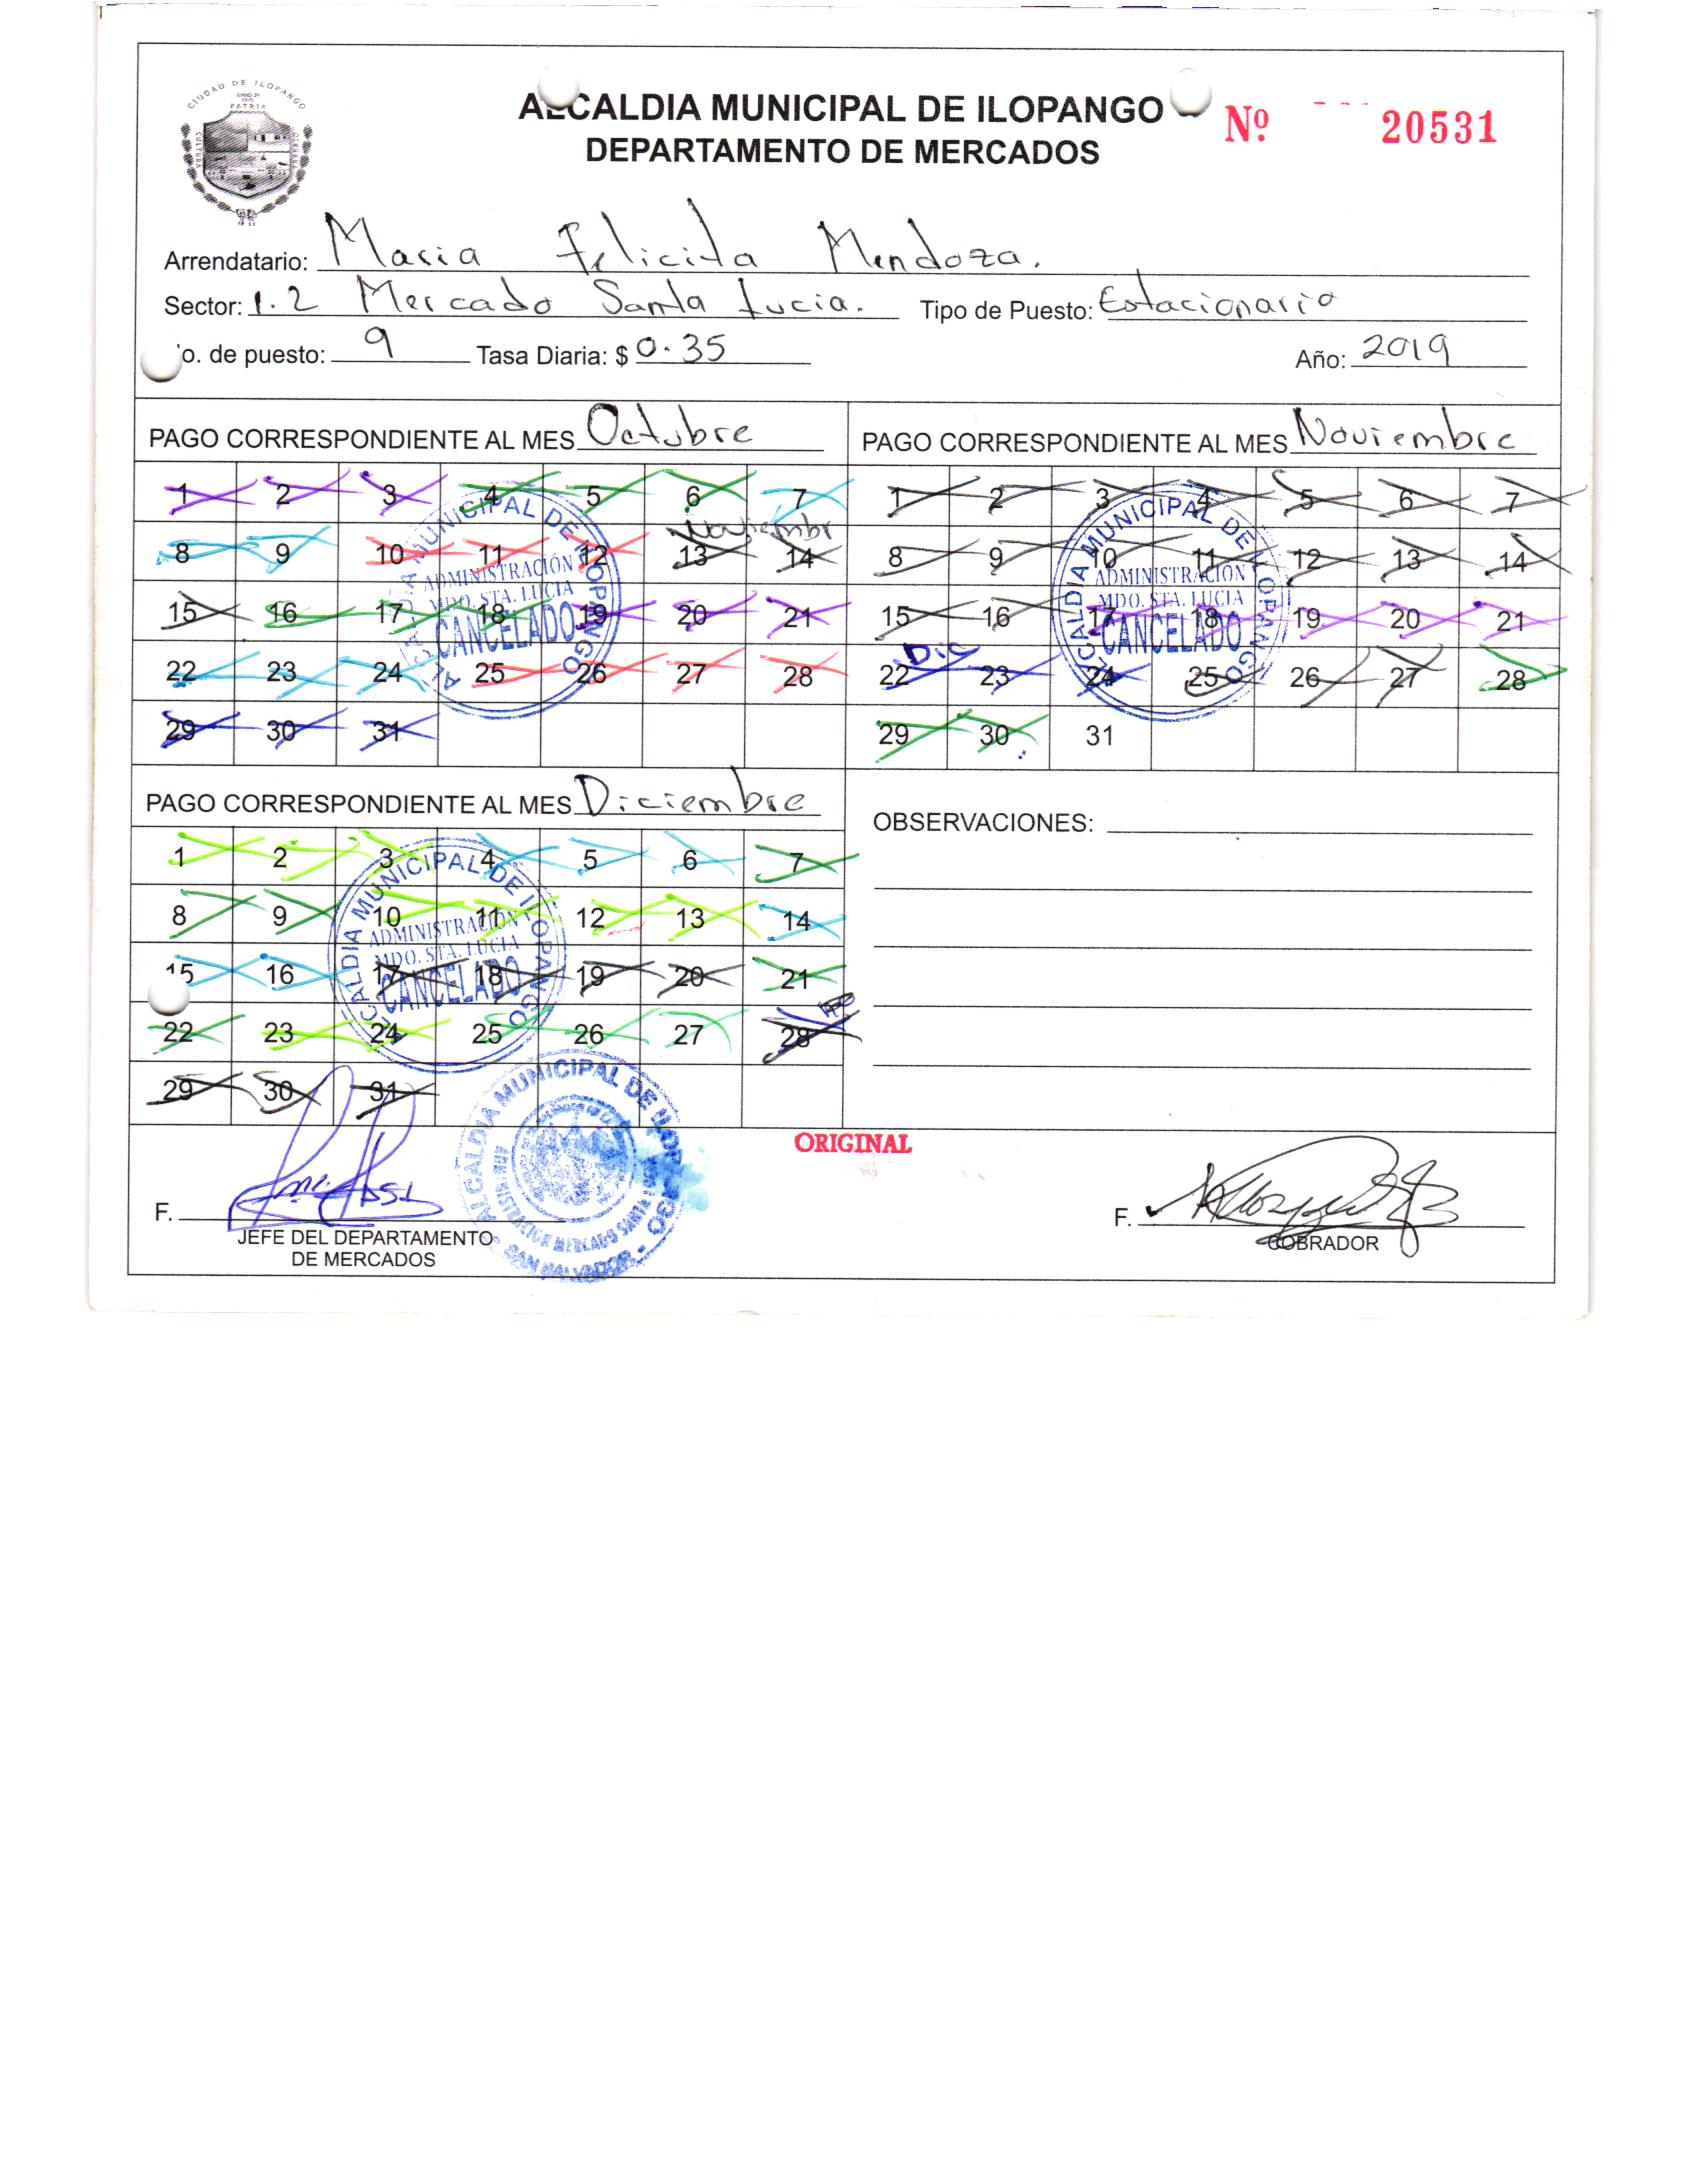 CIUDAD DE ILOPANGO
PATRIA
CULTURA
ALCALDIA MUNICIPAL DE ILOPANGO
DEPARTAMENTO DE MERCADOS
Nº 20531
Arrendatario: Maria Felicita Mendoza.
Sector: 1.2 Mercado Santa Lucia. Tipo de Puesto: Estacionario
o. de puesto: 9 Tasa Diaria: $ 0.35 Año: 2019
PAGO CORRESPONDIENTE AL MES Octubre
1 2 3 4 5 6 7
Noviembr
8 9 10 11 12 13 14
15 16 17 18 19 20 21
22 23 24 25 26 27 28
29 30 31
ALCALDIA MUNICIPAL DE ILOPANGO
ADMINISTRACIÓN
MDO. STA. LUCIA
CANCELADO
PAGO CORRESPONDIENTE AL MES Noviembre
1 2 3 4 5 6 7
8 9 10 11 12 13 14
15 16 17 18 19 20 21
Dic
22 23 24 25 26 27 28
29 30 31
ALCALDIA MUNICIPAL DE ILOPANGO
ADMINISTRACIÓN
MDO. STA. LUCIA
CANCELADO
PAGO CORRESPONDIENTE AL MES Diciembre
1 2 3 4 5 6 7
8 9 10 11 12 13 14
15 16 17 18 19 20 21
22 23 24 25 26 27 28
29 30 31
ALCALDIA MUNICIPAL DE ILOPANGO
ADMINISTRACIÓN
MDO. STA. LUCIA
CANCELADO
OBSERVACIONES:
ORIGINAL
F.
JEFE DEL DEPARTAMENTO
DE MERCADOS
ALCALDIA MUNICIPAL DE ILOPANGO
SAN SALVADOR
F.
COBRADOR